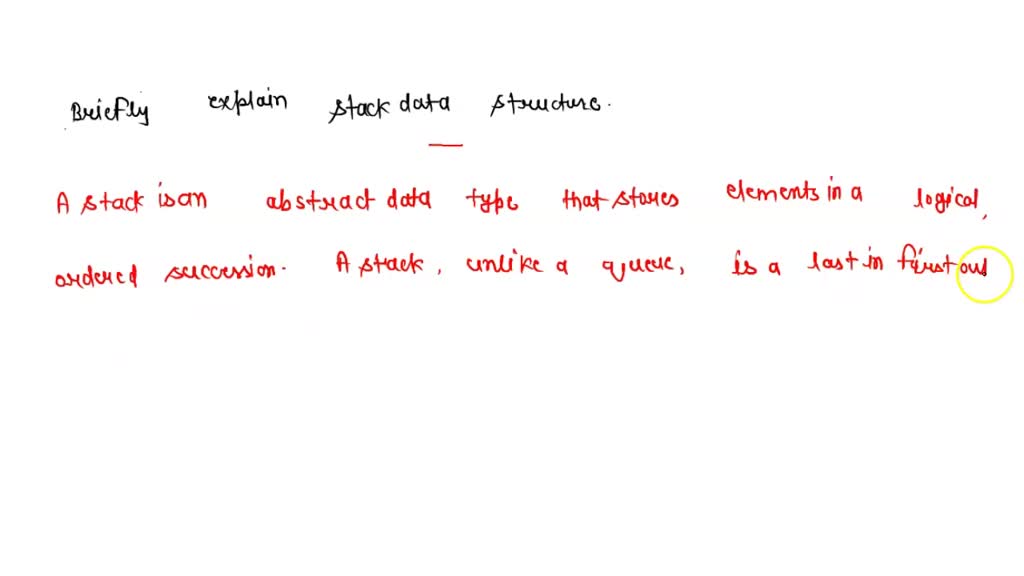 Briefly explain stack data structure.
A stack is an abstract data type that stores elements in a logical,
ordered succession. A stack, unlike a queue, is a last in first out